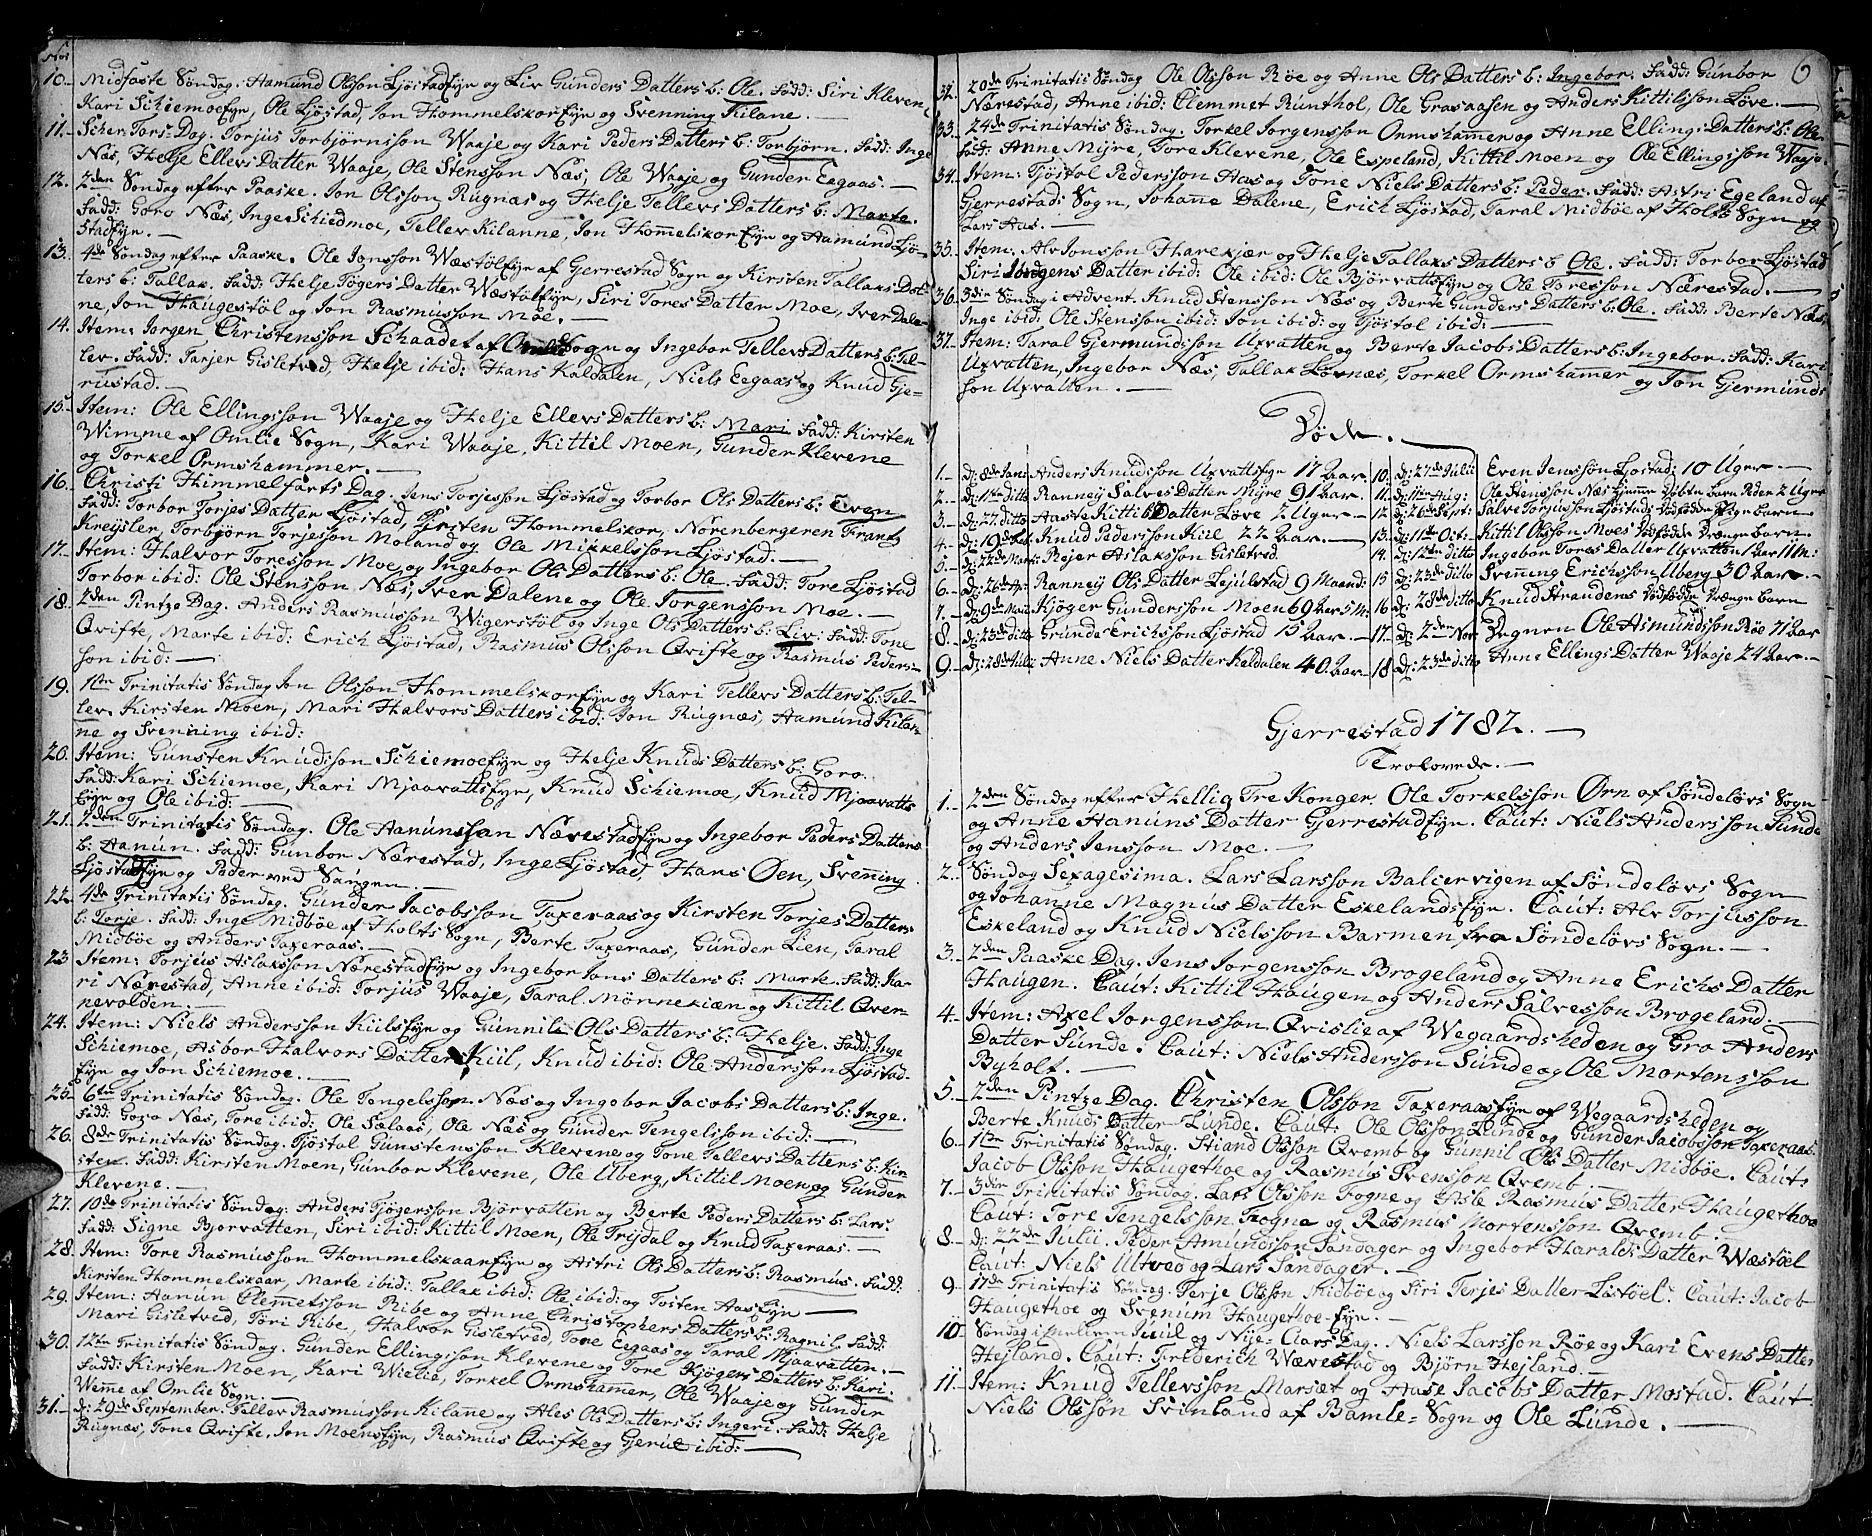 No:
10. Midfaste Søndag: Aamund Olsson Ljøstadfyn og Liv Gunders Datters b: Ole. Fadd: Siri Kleven,
Kari Schiemoefyn, Ole Ljøstad, Jon Thommelskorfyn og Svenning Kilane. —
11. Scher Tors-Dag. Torjus Torbjørnsson Waaje og Kari Peders Datters b: Torbjørn. Fadd: Inge
Næs, Thelje Ellevs Datter Waaje, Ole Stensson Næs, Ole Waaje og Gunder Eegaas. —
12. 2den Søndag efter Paaske. Jon Olsson Rugnæs og Thelje Tellevs Datters b: Marte.
Fadd: Goro Næs, Inge Schiedmoe, Tellev Kilanne, Jon Thommelskorfyn og Aamund Ljø-
stadfyn. —
13. 4de Søndag efter Paaske. Ole Jonsson Wæstølfyn af Gjerrestad Sogn og Kirsten Tallaks Dat-
ters b: Tallak. Fadd: Thelje Tøgers Datter Wæstølfyn, Siri Tores Datter Moe, Iver Dale-
ne, Jon Thaugestøl og Jon Rasmusson Moe. —
14. Item: Jorgen Christensson Schaadet af Omlie Sogn og Ingebor Tellevs Datters b: Tel-
lev. Fadd: Tarjer Gisletved, Thelje ibid: Thans Kaldalen, Niels Eegaas og Knud Gje-
rustad. —
15. Item: Ole Ellingsson Waaje og Thelje Ellevs Datters b: Mari Fadd: Kirsten
Wimme af Omlie Sogn, Kari Waaje, Kittil Moen, Gunder Klevene
og Torkel Ormshammer. —
16. Christi Himmelfarts Dag. Jens Torjesson Ljøstad og Torbor Ols Datters b: Even
Fadd: Torbor Torjes Datter Ljøstad, Kirsten Thommelskor, Nørenbergeren Frantz
Kreysler, Torbjørn Torjeson Moland og Ole Mikkelsson Ljøstad. —
17. Item: Thalvor Toresson Moe og Ingebor Ols Datters b: Ole. Fadd: Tore Ljøstad
Torbor ibid: Ole Stensson Næs, Iver Dalene og Ole Torgensson Moe. —
18. 2den Pintze Dag. Anders Rasmusson Wigerstøl og Inge Ols Datters b: Liv: Fadd: Tone
Qvifte, Marte ibid: Erich Ljøstad, Rasmus Olsson Qvifte og Rasmus Peders-
son ibid: —
19. 1ste Trinitatis Søndag Jon Olsson Thommelskorfyn og Kari Tellevs Datters b: Tel-
lev. Kirsten Moen, Mari Thalvors Datters ibid: Jon Rugnæs, Aamund Kilan-
ne og Svenning ibid:
20. Item: Gunsten Knudsson Schiemoefyn og Thelje Knuds Datters b: Goro.
Fadd: Kari Schiemoe, Kari Mjaavattsfyn, Knud Schiemoe, Knud Mjaavatts
fyn og Ole ibid: —
21. 2den Trinitatis Søndag. Ole Aanunsson Nærestadfyn og Ingebor Peders Datters
b: Aanun. Fadd: Gunbor Nærestad, Inge Ljøstad, Thans Øen, Svenning
Ljøstadfyn og Peder ved Sangen. —
22. 4de Trinitatis Søndag. Gunder Jacobsson Taxeraas og Kirsten Torjes Datters
b: Torje. Fadd: Inge Midbøe af Tholts Sogn, Berte Taxeraas, Gunder Lien, Taral
Midbøe og Anders Taxeraas. —
23 Item: Torjus Aslaksson Nærestadfyn og Ingebor Jons Datters b: Marte. Fadd: Ka-
ri Nærestad, Anne ibid: Torjus Waaje, Taral Mønnekiæn og Kittil Qven-
nevolden. —
24. Item: Niels Andersson Kiilsfyn og Gunnild Ols Datters b: Thelje. Fadd: Inge
Schiemoe, Asbor Thalvors Datter Kiil, Knud ibid: Ole Andersson Ljøstad-
fyn og Jon Schiemoe. —
25. 6te Trinitatis Søndag. Ole Tengelsson Næs og Ingebor Jacobs Datters b: Inge.
Fadd: Goro Næs, Tore ibid: Ole Salaas, Ole Næs og Gunder Tengelsson ibid: —
26. 8de Trinitatis Søndag. Tjøstøl Gunstensson Klevene og Tone Tellevs Datters b: Kir
sten. Fadd: Kirsten Moen, Gunbor Klevene, Ole Uberg, Kittil Moen og Gunder
Klevene. —
27. 10de Trinitatis Søndag. Anders Tjøgersson Bjørvatten og Berte Peders Datters b: Lars.
Fadd: Signe Bjorvatten, Siri ibid: Kittil Moen, Ole Trydal og Knud Taxeraas. —
28. Item: Tore Rasmusson Thommelskaarfyn og Astri Ols Datters b: Rasmus. Fadd:
Kirsten Thommelskaar, Marte ibid: Tallak ibid: Ole ibid: og Tosten Aasfyn —
29. Item: Aanun Clemmetsson Ribe og Anne Christophers Datters b: Ragnil. Fadd:
Mari Gisletved, Tori Ribe, Halvor Gisletved, Tone Eegaas og Taral Mjaavatten. —
30. 12te Trinitatis Søndag. Gunder Ellingsson Klevene og Tore Kjøgers Datters b: Kari.
Fadd: Kirsten Moen, Kari Wielie, Torkel Ormshamer, Ole Waaje og Gunder
Wemme af Omlie Sogn. —
31. d: 29de September. Tellev Rasmusson Kilanne og Ales Ols Datters b: Ingeri. Fadd: Thelje
Rugnæs, Tone Qvifte, Jon Moensfyn, Rasmus Qvifte og Gjerut ibid: —
9
32. 20de Trinitatis Søndag Ole Olsson Røe og Anne Ols Datters b: Ingebor. Fadd: Gunbor
Nærestad, Anne ibid: Clemmet Runthol, Ole Grasaasen og Anders Kittilsson Løve. —
33. 24de Trinitatis Søndag. Torkel Jorgensson Ormshamer og Anne Ellings Datters b: Ole
Fad: Anne Myre, Tore Klevene, Ole Espeland, Kittil Moen og Ole Ellingsson Waaje
34. Item: Tjøstol Pedersson Aas og Tone Niels Datters b: Peder. Fadd: Astri Egeland af
Gjerrestad: Sogn, Johanne Dalene, Erich Ljøstad, Taral Midbøe af Tholts Sogn og
Lars Aas. —
35. Item: Alv Jonsson Tharekjær og Thelje Tallaks Datters b Ole. Fadd: Torbor Ljøstad
Siri Jorgens Datter ibid: Ole ibid: Ole Bjørvattsfyn og Ole Bresson Nærestad. —
36. 3die Søndag i Advent. Knud Stensson Næs og Berte Gunders Datters b: Ole. Fadd: Berte Næs,
Inge ibid: Ole Stensson ibid: Jon ibid: og Tjøstol ibid: —
37. Item: Taral Gjermundsson Uxvatten og Berte Jacobs Datters b: Ingebor. Fadd: Kari
Uxvatten, Ingebor Næs, Tallak Løvnæs, Torkel Ormshamer og Jon Gjermunds
son Uxvatten. —
Døde. —
1. — d: 8de Jan: Anders Knudsson Uxvattsfyn 17 Aar
2. — d: 11te Ditto Ranney Salves Datter Myre 91 Aar.
3. — d: 27. ditto Aaste Kittils Datter Løve 2 Uger —
4. — d: 19de Knud Pedersson Kiil 22 Aar. —
5. — d: 22de Mart: Rejer Aslaksson Gisletved
6. — d: 26de Ap: Ranney Ols Datter Lejulstad 9 Maend:
7. — d: 9de Maii Kjøger Gundersson Moen 69 Aar 5 M:
8. — d: 23de ditto Grunde Erichsson Ljøstad 15 Aar. —
9. — d: 28de Juli: Anne Niels Datter Keldalen 40 Aar —
10. d: 27de Julii Even Jensson Ljøstad: 10 Uger —
11. d: 11te Aug: Ole Stensson Næs hjemme døbte barn Peder 2 Uger
12 d: 26de Sept: Salve Torjusson Ljøstads dødfødde Pige barn —
13. d: 11te Oct: Kittil Olsson Moes dødfødde Drænge barn —
14. d: 12te ditto Ingebor Tores Datter Uxvatten 1 Aar 11 M:
15 d: 23de ditto Svenning Erichsson Uberg 30 Aar —
16 d: 28de ditto Knud Straudens dødfødde Drænge barn
17. d: 2den Nov: Degnen Ole Asmundsson Røe 71 Aar
18 d: 23de ditto Anne Ellings Datter Waaje 24 Aar —
Gjerrestad 1782. —
Trolovede. —
1. — 2den Søndag efter Hellig Tre Konger. Ole Torkelsson Ørn af Søndeløvs Sogn
og Anne Aanuns Datter Gjerrestadfyn. Caut: Niels Andersson Sunde
og Anders Jensson Moe. —
2. — Søndag Sexagesima. Lars Larsson Balcervigen af Søndeløvs Sogn
og Johanne Magnus Datter Eskelandsfyn. Caut: Alv Torjusson
Eskeland og Knud Nielsson Barmen fra Søndeløvs Sogn. —
3. — 2den Paaske Dag. Jens Jorgensson Brogeland og Anne Erichs Datter
Haugen. Caut: Kittil Thaugen og Anders Salvesson Brogeland. —
4. — Item: Axel Jorgensson Qvislie af Wegaardsheden og Gro Anders
Datter Sunde. Caut: Niels Andersson Sunde og Ole Mortensson
Byholt. —
5. — 2den Pintze Dag. Christen Olsson Taxeraasfyn af Wegaardsheden og
Berte Knuds Datter Lunde. Caut: Ole Olsson Lunde og Gunder Jacobsson Taxeraas.
6. — 1ste Trinitatis Søndag. Stiand Olsson Qvemb og Gunnil Ols Datter Midbøe. Caut:
Jacob Olsson Thaugethoe og Rasmus Svensson Qvemb. —
7. — 3die Trinitatis Søndag. Lars Olsson Togne og Asle Rasmus Datter Haugethoe
Caut: Tore Tengelsson Trogne og Rasmus Mortensson Qvemb. —
8. — d: 22de Julii. Peder Amundsson Sandager og Ingebor Haralds Datter Wæstøel
Caut: Niels Ultved og Lars Sandager. —
9. — 17de Trinitatis Søndag. Terje Olsson Midbøe og Siri Terjes Datter Løstøel. Caut: Jacob
Thaugethoe og Svenum Thaugethoe-fyn. —
10 — Søndag imellem Juul og Nye-Aars Dag. Niels Larsson Røe og Kari Evens Datter
Hejland. Caut: Frederich Wævestad og Bjørn Hejland. —
11. — Item: Knud Tellevsson Marsæt og Aase Jacobs Datter Mostad. Caut
Niels Olsson Svinland af Bamle-Sogn og Ole Lunde. —